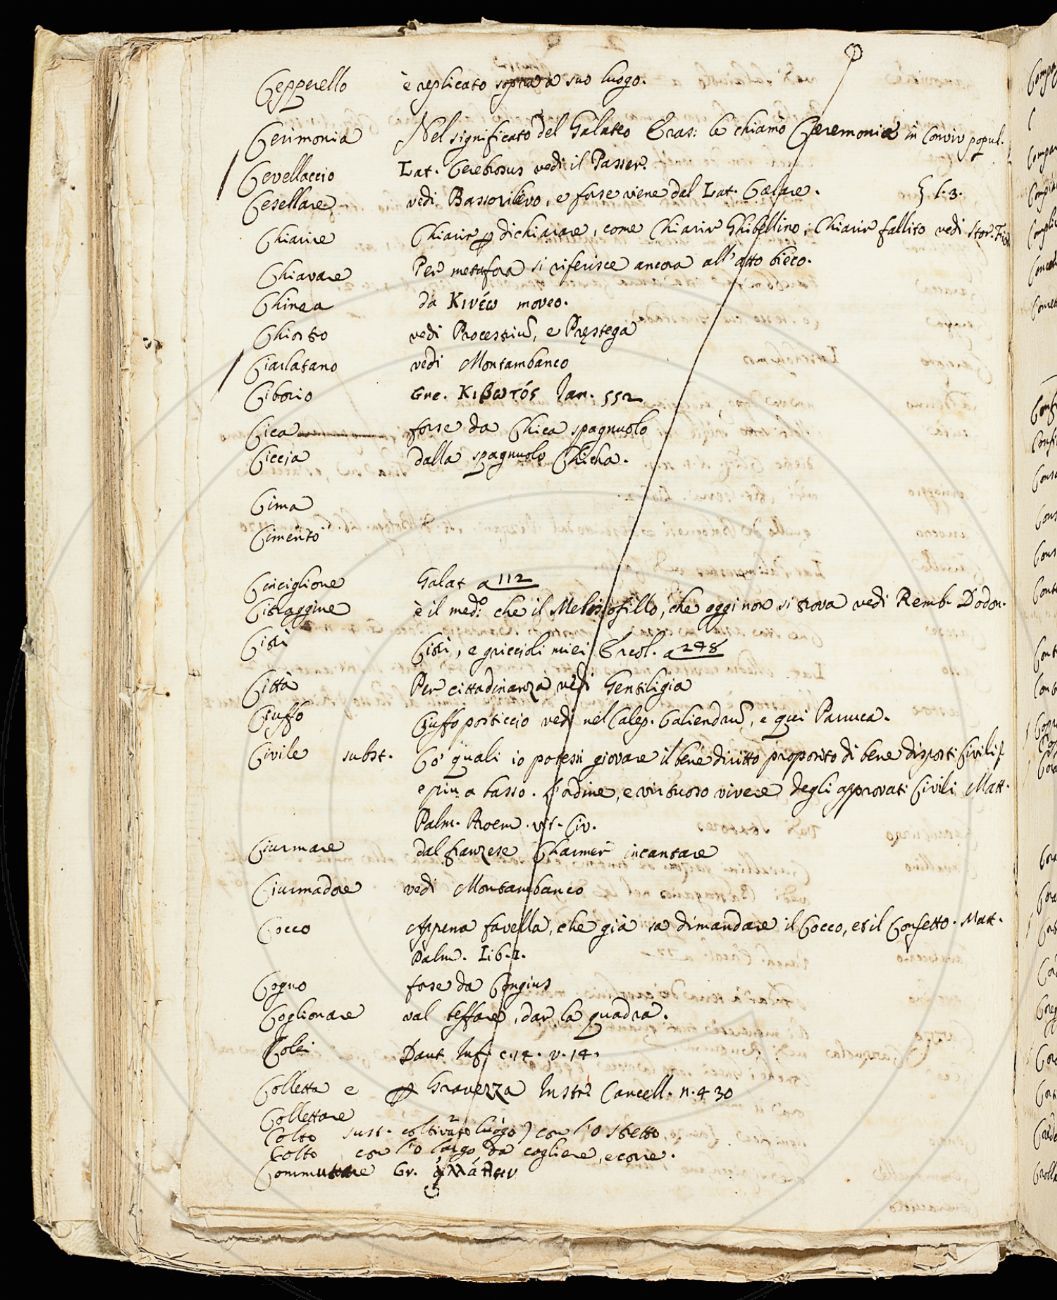 Cepperello è replicato sopra a suo luogo.
Cerimonia Nel significato del Galateo Eras: la chiamò Cæremoniæ in Conviv popul.
Cervellaccio Lat. Cerebrosus vedi il Passer.
Cesellare vedi Bassorilievo, e forse viene dal Lat. Cælare. § l. 3.
Chiarire Chiarir p dichiarare, come Chiarir Ghibellino; Chiarir fallito vedi Stor.
Chiavare Per metafora si riferisce ancora all' atto bieco.
Chinea dà Κινέω moveo.
Chiostro vedi , e
Ciarlatano vedi Montambanco
Ciborio Gre. Κιβωτός Jan. 552
Cica forse da Chica spagnuolo
Ciccia dalla spagnuolo Chicha.
Cima
Cimento
Cinciglione Galat a 112
Citraggine è il med.º che il Melissofillo, che oggi non si trova vedi Remb. Dodon.
Citi Citi, e griccioli miei Ercol. a 248
Città Per cittadinanza vedi Gentiligia
Ciuffo Ciuffo posticcio vedi nel Calep. Caliendrũ, e qui Parruca.
Civile subst. Co' quali io potessi giovare il bene diritto proposito di bene disposti Civili
e più a basso. L'ordine, e virtuoso vivere degli approvati Civili Matt.
Palm. Proem. vit. Civ.
Ciurmare dal franzese Charmer incantare
Ciurmadore vedi Montambanco
Cocco Appena favella, che già sa dimandare il Cocco, et il Confetto. Matt.
Palm. Lib. 1.
Cogno forse da Congius
Coglionare val beffare, dar la quadra.
Colei Dant. Inf. c. 14. v. 14.
Colletta e p Gravezza Instr. Cancell. n. 430
Collettare
Colto sust. coltivato luogo) con l'o stretto
Colto con l'o largo, da cogliere, e corre.
Commutare Gr.